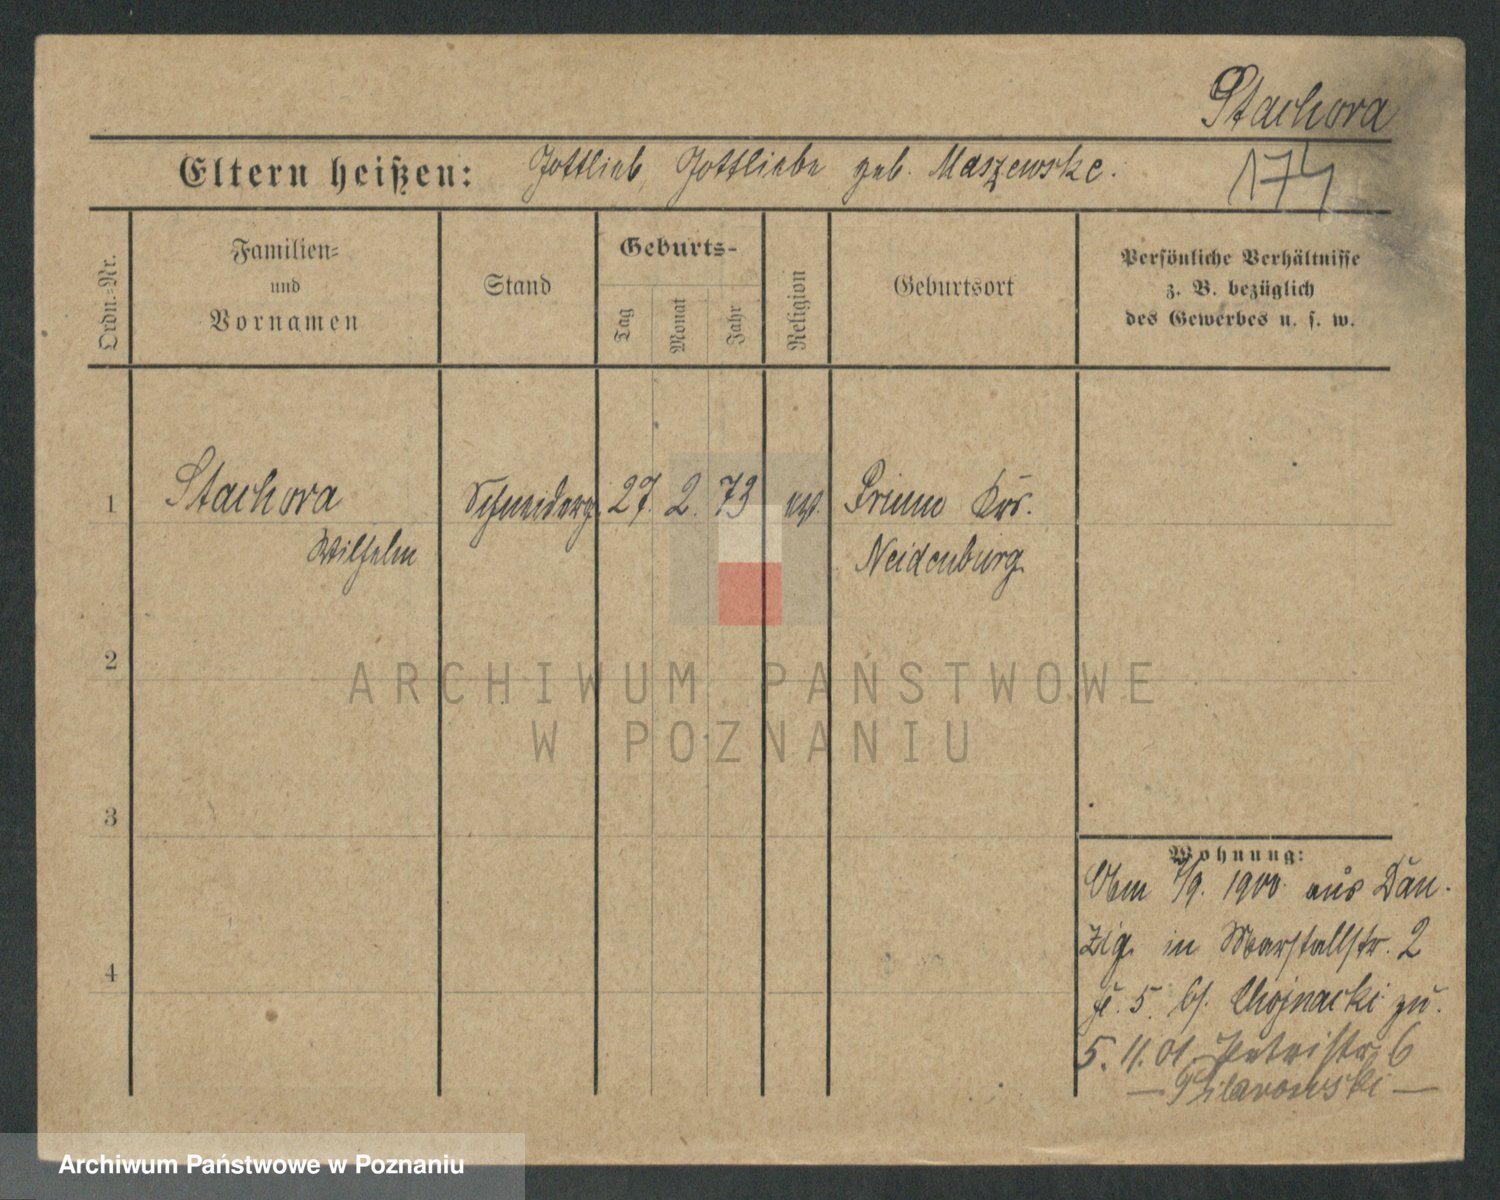 Stachora
174
Eltern heißen: Gottlieb, Gottliebe geb. Maszewske.
Ordn.-Nr.
Familien-
und
Vornamen
Stand
Geburts-
Tag
Monat
Jahr
Religion
Geburtsort
Persönliche Verhältnisse
z. B. bezüglich
des Gewerbes u. s. w.
1 Stachora Schneiderg. 27. 2. 73 ev. Krs.
Wilhelm Neidenburg
2
ARCHIWUM PAŃSTWOWE
W POZNANIU
3
4
Wohnung:
/9. 1900 aus Dan-
zig in Marstallstr. 2
5. bei Chojnacki zu.
5. 11. 01. Petristr. 6
— Pilarowski —
Archiwum Państwowe w Poznaniu